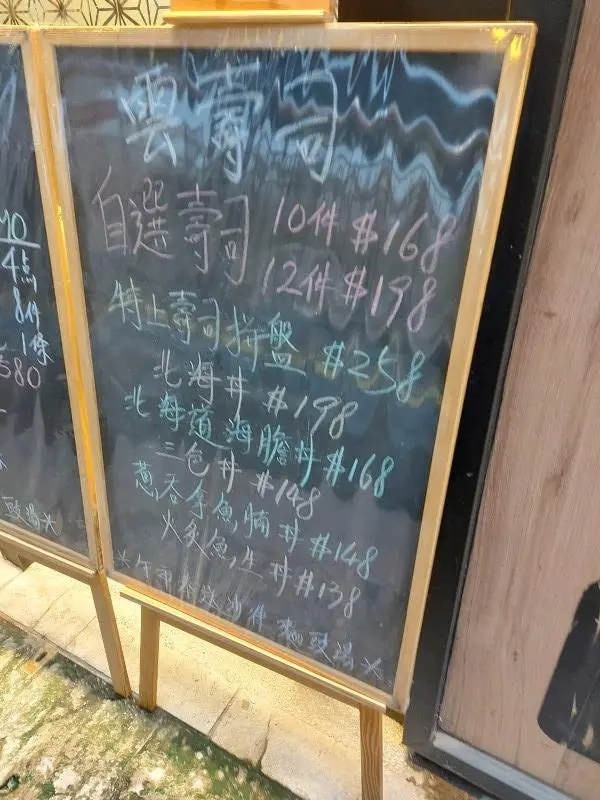 雲壽司
自選壽司 10件 $168
12件 $198
特上壽司拼盤 $258
北海丼 $198
北海道海膽丼 $168
三色丼 $148
蔥吞拿魚腩丼 $148
火炙魚生丼 $138
米午市 沙律 麵豉湯米
10
4点
8件
1條
580
豉湯米